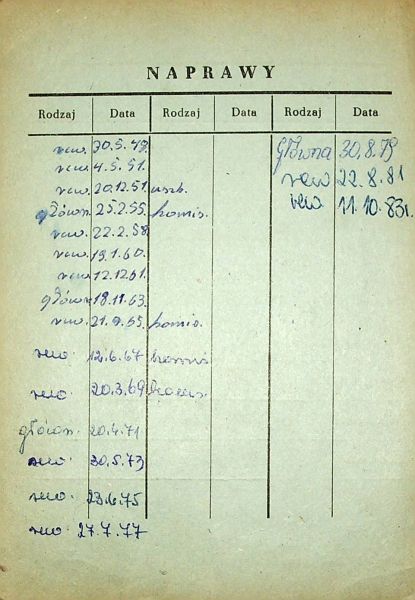 NAPRAWY
Rodzaj Data Rodzaj Data Rodzaj Data
rew. 30.5.49.
rew. 4.5.51.
rew. 20.12.51. uszk.
główn. 25.2.55. komis.
rew. 22.2.58.
rew. 19.1.60.
rew. 12.12.61.
główn. 18.11.63.
rew. 21.9.65. komis.
rew. 12.6.67
rew. 20.3.69
główn. 20.4.71
rew. 30.5.73
rew. 23.6.75
rew. 27.7.77
Główna 30.8.79
rew 22.8.81
rew 11.10.83r.